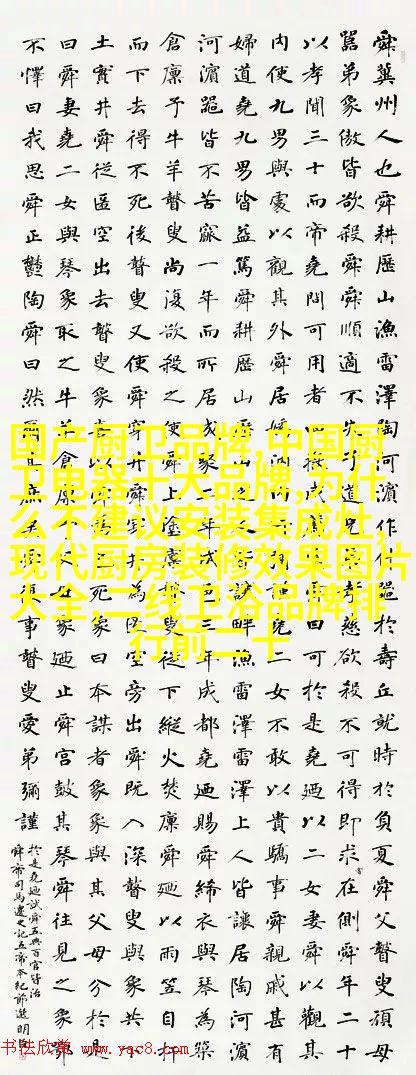 舜冀州人也舜耕歷山漁雷澤陶河濱作於壽丘就時於負夏舜父瞽叟頑母
嚚弟象傲皆欲殺舜舜順適不失子道兄孝慈欲殺不可得即求在側舜年二十
以孝聞三十而帝堯問可用者四曰可於是堯廼以二女妻舜以觀其
內使九男與處以觀其外舜居媯汭內堯二女不敢以貴驕事舜親戚甚有
婦道堯九男皆益篤舜耕歷山讓畔漁雷澤雷澤上人皆讓居陶河濱
河濱器皆不苦窳一年而所居成聚二年成邑三年成都堯廼賜舜絺衣與琴為築
倉廩予牛羊瞽叟尚復欲殺之使舜上塗廩瞽叟從下縱火焚廩舜廼以兩笠自扞
而下去得不死後瞽叟又使舜穿井舜為匿空旁出舜既入深瞽叟與象共下
土實井舜從匿空出去瞽叟象喜以舜死象曰本謀者象象與其父母分於是
曰舜妻堯二女與琴象取之牛羊倉廩父母象廼止舜宮鼓其琴舜往見之象鄂
不懌曰我思舜正鬱陶舜曰然爾其庶舜復事瞽叟愛弟彌謹
於是堯廼試舜五典百官皆治
舜帝司馬遷史記五帝本紀節選
国产厨卫品牌,中国厨
卫电器十大品牌,为什
么不建议安装集成灶,
现代厨房装修效果图片
大全,一线卫浴品牌排
行前二十
书法欣赏 www.yac8.com